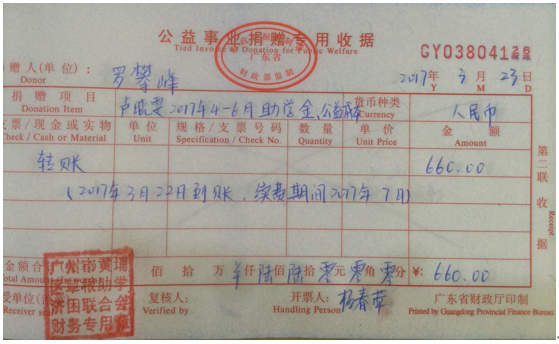 公益事业捐赠专用收据
Tied Invoice Donation for Public Welfare
广东省
财政部监制
GY03804126
捐赠人(单位): 罗攀峰
Donor
2017年 3月 23日
Y M D
捐赠项目 2017年4-6月助学金 货币种类 人民币
Donation Item Currency
支票/现金或实物 单位 规格/支票号码 数量 单价 金额
Check / Cash or Material Unit Specification / Check No. Quantity Unit Price Amount
转账 660.00
(2017年3月22日到账,续费期间2017年7月)
第二联 收据
Receipt
金额合 佰 拾 万 仟 陆佰 陆拾 零元 零角 零分 ¥: 660.00
Total Amount
广州市黄埔
区草根助学
济困联合会
财务专用章
受单位
Receiver
复核人:
Verified by
开票人: 杨春苹
Handling Person
广东省财政厅印制
Printed by Guangdong Provincial Finance Bureau